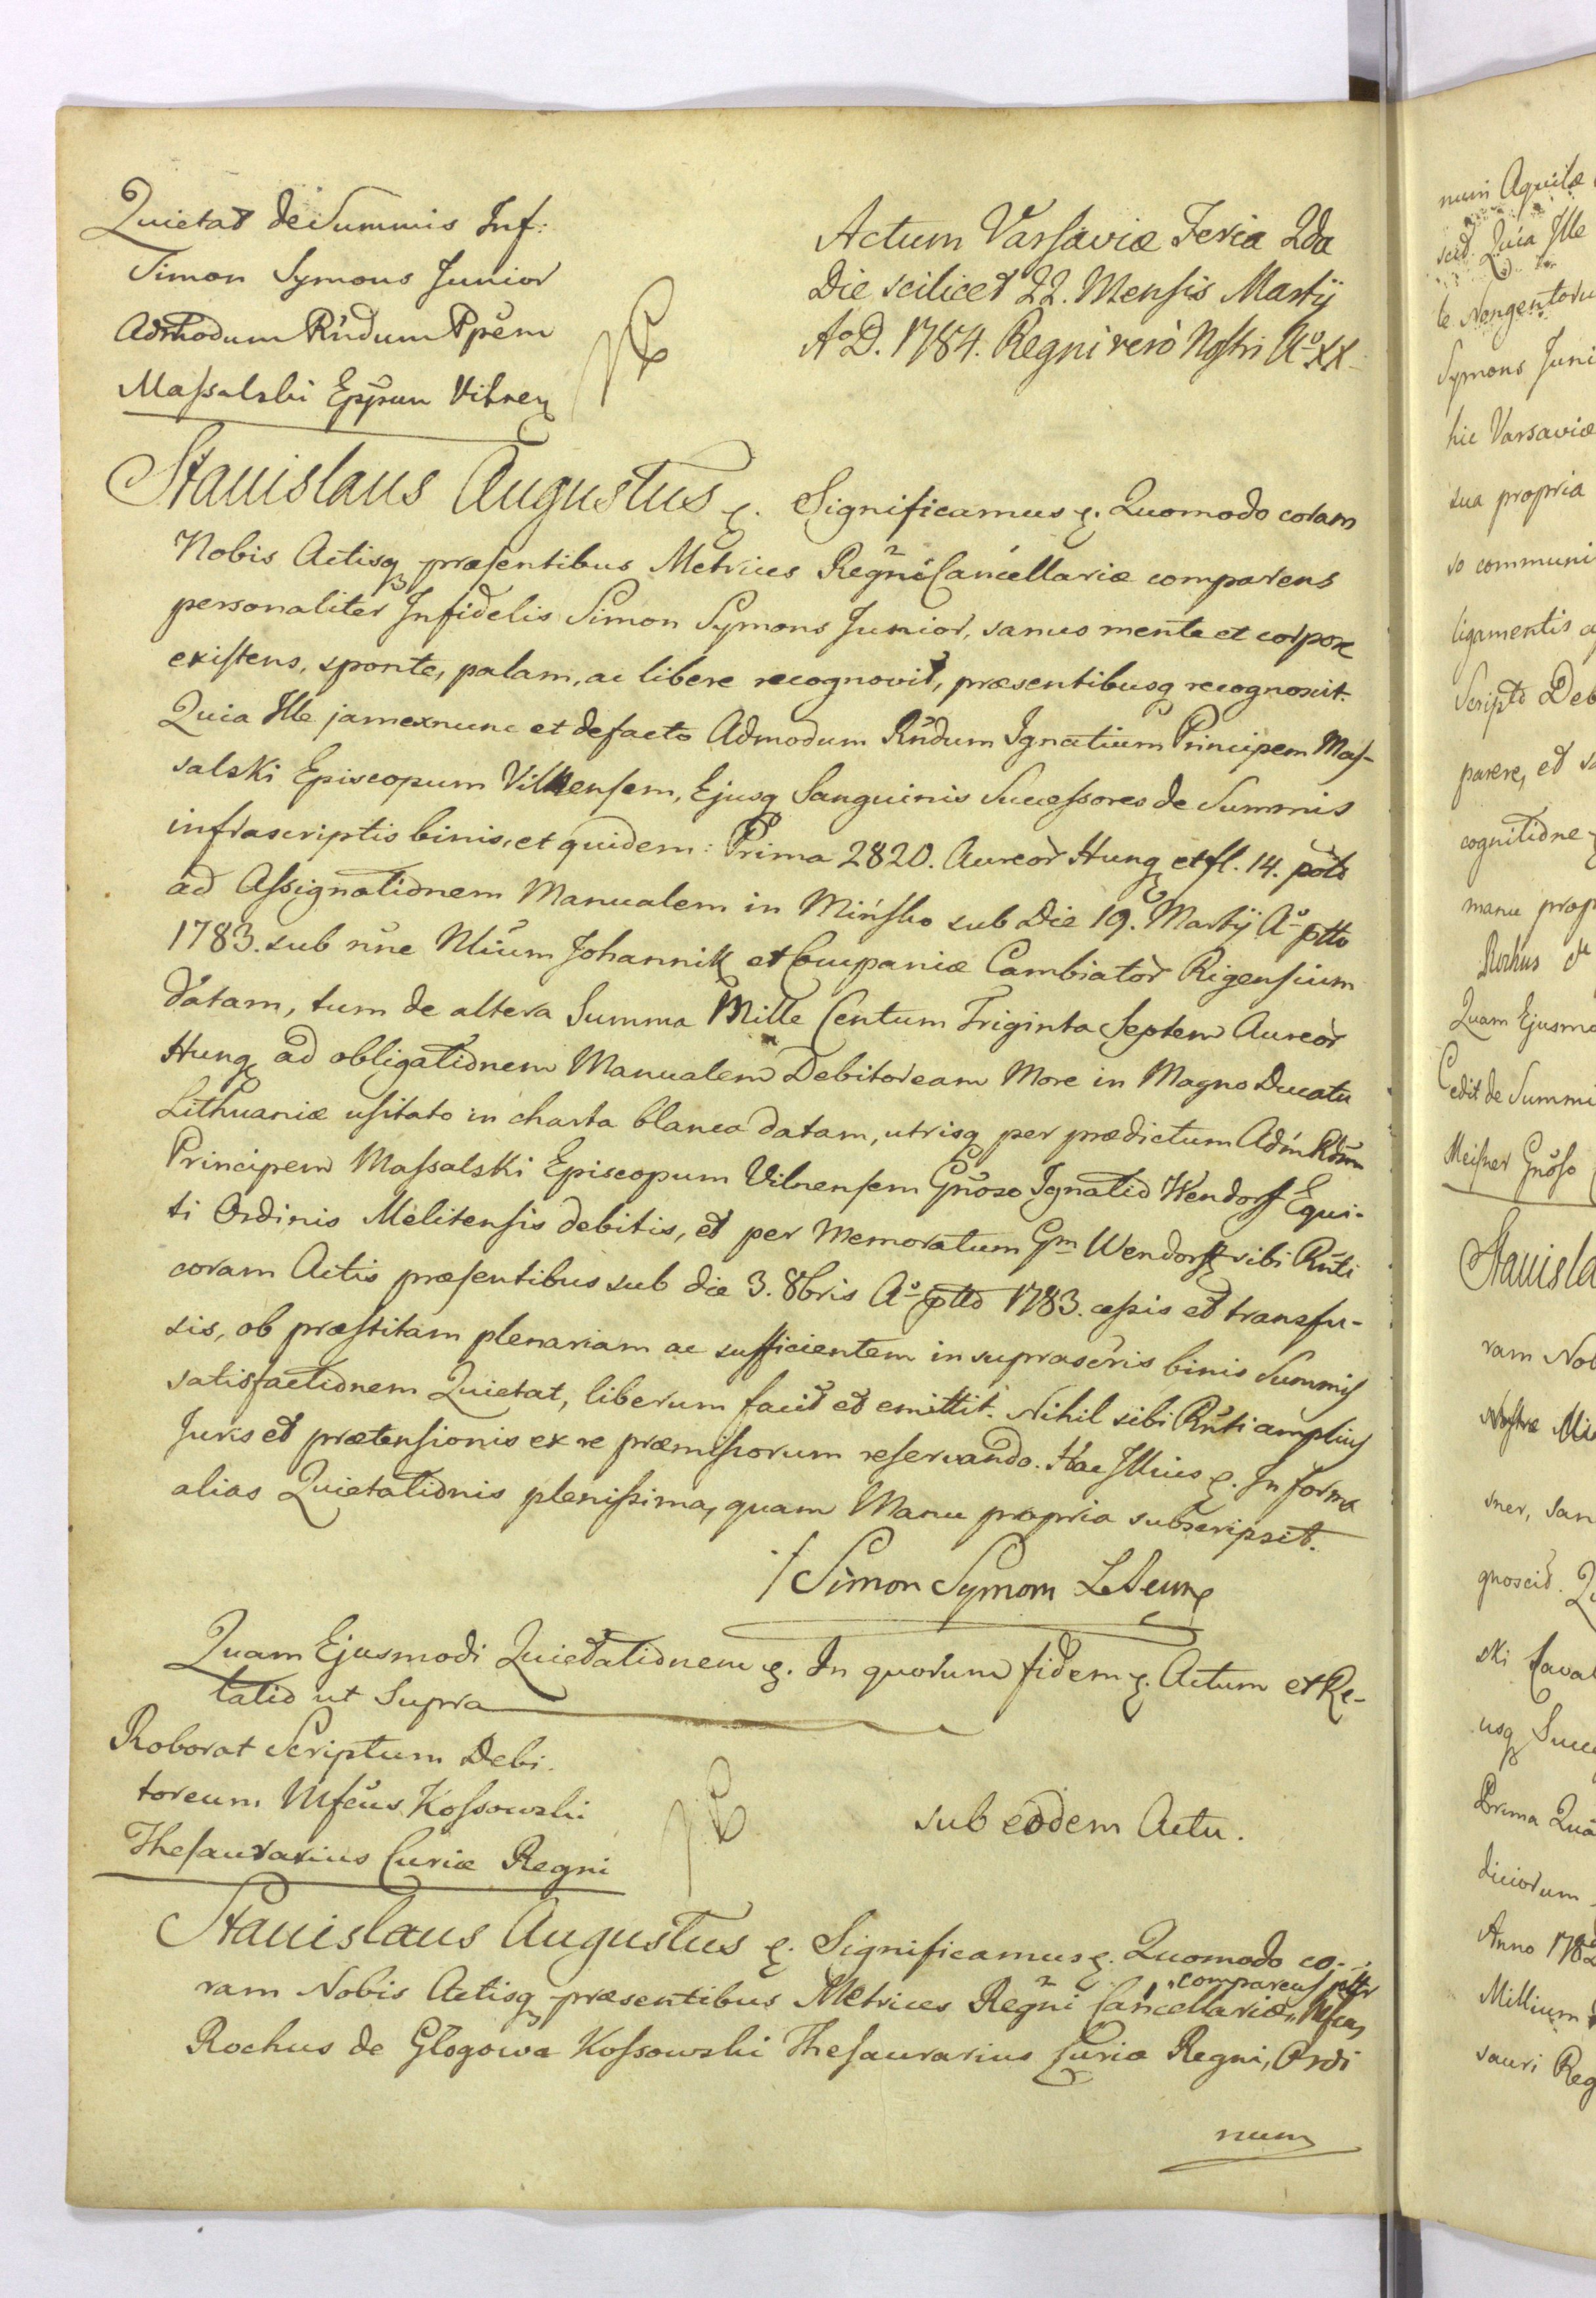 Quietat de Summis Inf:
Simon Symons Junior
Admodum Rñdum Ppẽm
Massalski Eppum Vilnen
Actum Varsaviæ Feria 2da
Die scilicet 22. Mensis Martij
A°D. 1784. Regni verò Nostri A° XX
Stanislaus Augustus &. Significamus &. Quomodo coram
Nobis Actisq præsentibus Metrices Regni Cancellariæ comparens
personaliter Infidelis Simon Symons Junior, sanus mente et corpore
existens, sponte, palam, ac libere recognovit, præsentibusq recognoscit.
Quia Ille jam exnunc et defacto Admodum Rñdum Ignatium Principem Mas-
salski Episcopum Vilnensem, Ejusq Sanguinis Successores de Summis
infrascriptis binis, et quidem: Prima 2820. Aureor Hung et fl. 14. pol
ad Assignationem Manualem in Mińsko sub Die 19. Martij A° ptto
1783. sub nñe Johannik et Companiæ Cambiator Rigensium
datam, tum de altera Summa Mille Centum Triginta Septem Aureor
Hung ad obligationem Manualem Debitoream More in Magno Ducatu
Lithuaniæ usitato in charta blanca datam, utrisq per prædictum Adm Rdum
Principem Massalski Episcopum Vilnensem Gñoso Ignatio Wendorf Equi-
ti Ordinis Melitensis debitis, et per Memoratum Gm Wendorff sibi Rñti
coram Actis præsentibus sub die 3. 8bris A° ptto 1783. cessis et transfu-
sis, ob præstitam plenariam ac sufficientem in suprascris binis Summis
satisfactionem Quietat, liberum facit et emittit. Nihil sibi Rñti amplius
Juris et prætensionis ex re præmissorum reservando. Hac Illius &. In forma
alias Quietationis plenissima, quam Manu propria subscripsit.
Simon Symons LeJeune
Quam Ejusmodi Quietationem &. In quorum fidem &. Actum et Re-
latio ut Supra
Roborat Scriptum Debi-
toreum Mfcus Kossowski
Thesaurarius Curiæ Regni
sub eodem Actu.
Stanislaus Augustus &. Significamus &. Quomodo co-
ram Nobis Actisq præsentibus Metrices Regni Cancellariæ comparens pltr Mfcus
Rochus de Głogowa Kossowski Thesaurarius Curiæ Regni, Ordi
num
num Aquilæ
Quia Ille
te Nongentoru
Symons Juni
hic Varsaviæ
sua propria
so communi
ligamentis
Scripto Deb
parere, et
cognitione
manu prop
Rochus
Quam Ejusmo
Cedit de Summi
Meisner Gñoso
Stanisla
ram Nob
Nostræ
sner, san
gnoscit.
ski Caval
usq Succ
Prima
diciorum
Anno 1782
Millium
sauri Reg